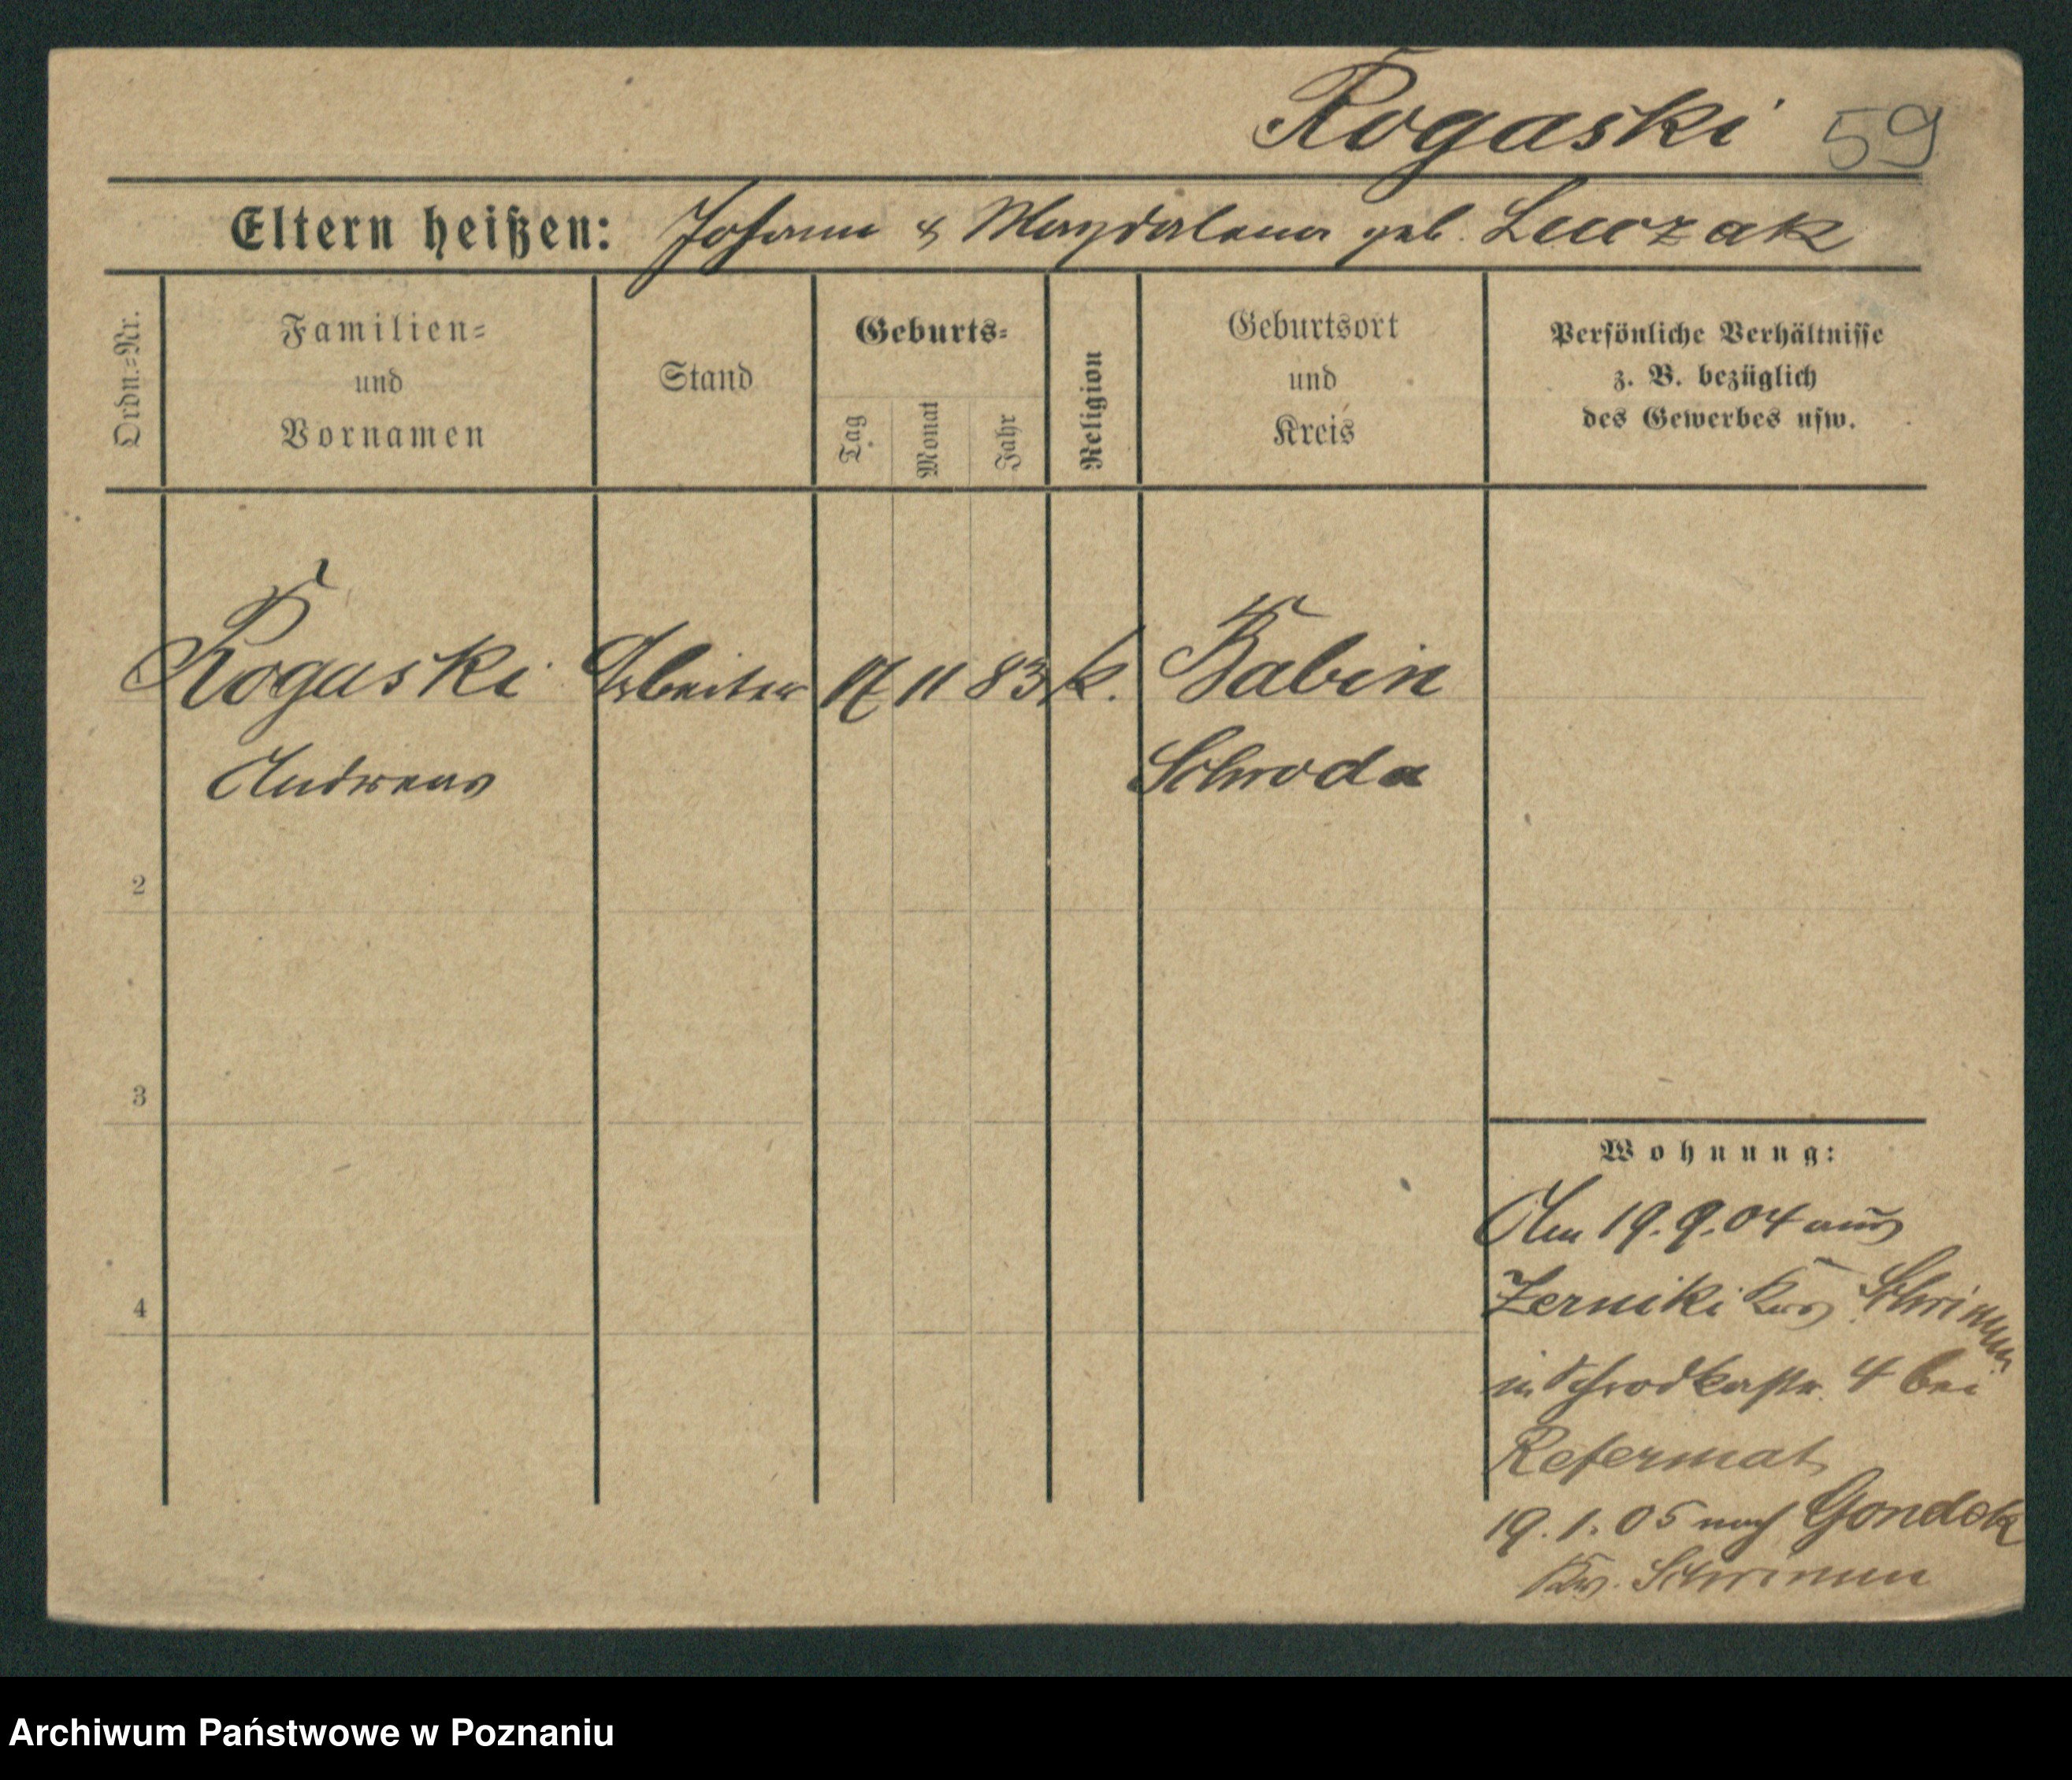 Rogaski 59
Eltern heißen: Johann & Magdalena geb. Luczak
Ordn.=Nr.
Familien=
und
Vornamen
Stand
Geburts=
Tag
Monat
Jahr
Religion
Geburtsort
und
Kreis
Persönliche Verhältnisse
z. B. bezüglich
des Gewerbes usw.
Rogaski Arbeiter 11 83 k. Babin
Andreas Schroda
2
3
4
Wohnung:
Am 19.9.04 aus
Zerniki Krs. Schrimm
in Schrodkastr. 4 bei
Refermat
19.1.05 nach Gondek
Kr. Schrimm
Archiwum Państwowe w Poznaniu